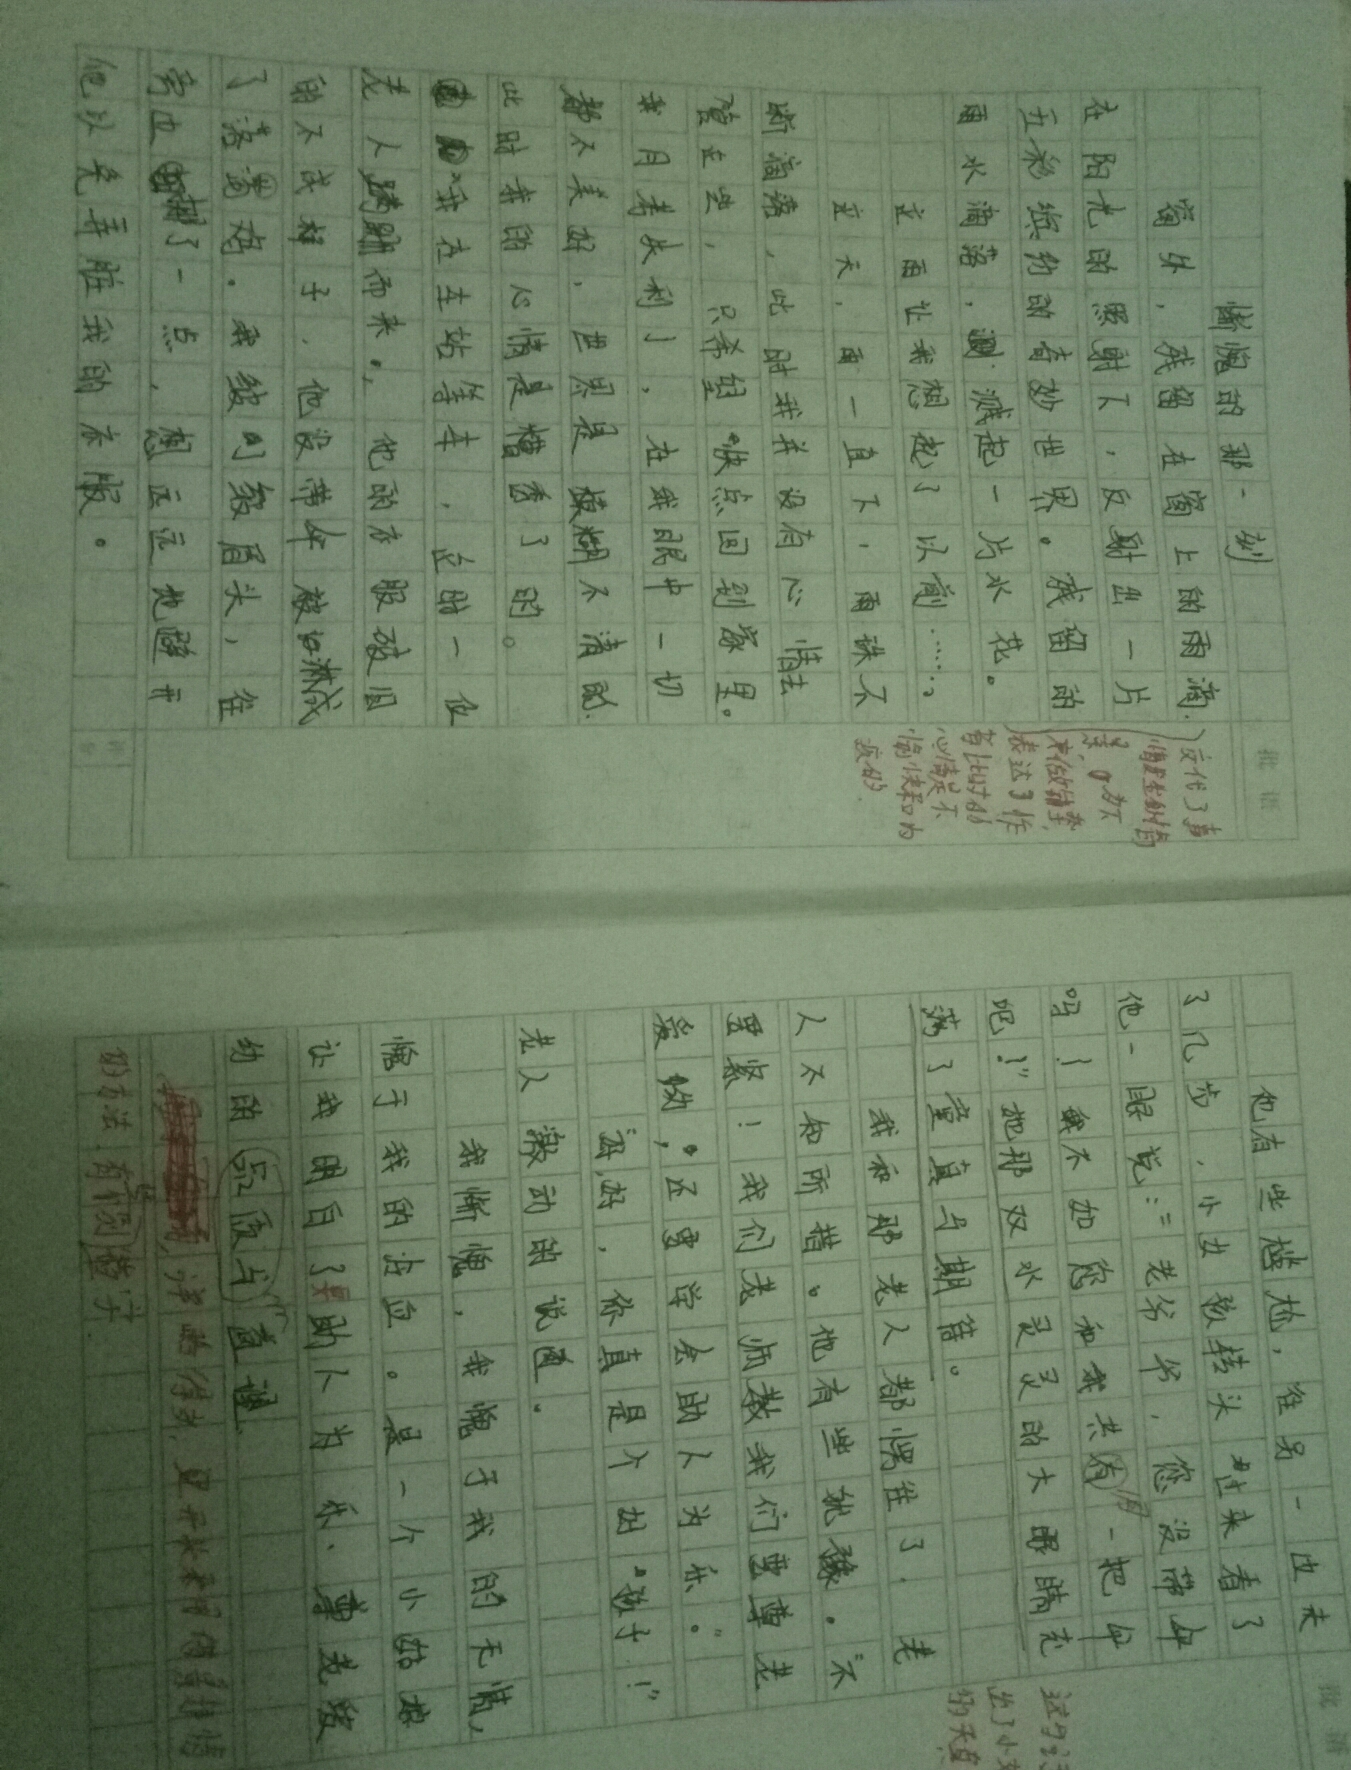 惭愧的那一刻
窗外，残留在窗上的雨滴.
在阳光的照射下，反射出一片
五彩缤纷的奇妙世界。残留的
雨水滴落，溅起一片水花。
这雨让我想起了以前……
这天，雨一直下，雨珠不
断滴落，此时我并没有心情去
管这些，只希望快点回到家里。
我月考失利了，在我眼中一切
都不美好，世界是模糊不清的.
此时我的心情是糟透了的。
我在车站等车，这时一位
老人蹒跚而来，他的衣服破旧
的不成样子、他没带伞被淋成
了落汤鸡。我皱了皱眉头，往
旁边挪了一点，想远远地避开
他以免弄脏我的衣服。
批语
交代了事
情发生的情
景，为下
文做铺垫，
表达了作
者此时的
心情是不
愉快和内
疚的
他有些尴尬，往另一边走
了几步，小女孩转头过来看了
他一眼说：“老爷爷，您没带伞
吗！我不如您和我共用一把伞
吧！”她那双水灵灵的大眼睛充
满了童真与期待。
我和那老人都愣住了，老
人不知所措。他有些犹豫。“不
要紧！我们老师教我们要尊老
爱幼，还要学会助人为乐。”
“好,好，你真是个好孩子！”
老人激动的说道。
我惭愧，我愧于我的无情，
愧于我的冷血。是一个小姑娘
让我明白了要助人为乐.尊老爱
幼的品质与道理
批语
这句话
出了小女
的天真
的方法，有错别字